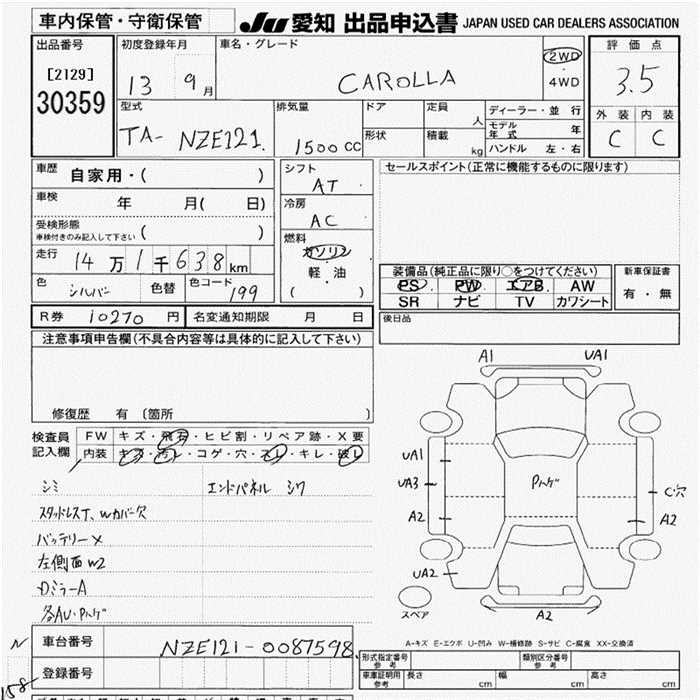 車内保管・守衛保管
JU 愛知 出品申込書 JAPAN USED CAR DEALERS ASSOCIATION
出品番号 初度登録年月 車名・グレード 評価点
[2129] 13 9月 CAROLLA 2WD・4WD 3.5
30359
型式 排気量 ドア 定員 人 ディーラー・並行 外装 内装
TA- NZE121. 1500 CC 形状 積載 kg モデル年式 年 C C
ハンドル 左・右
車歴 自家用・( ) シフト AT セールスポイント(正常に機能するものに限ります)
車検 年 月( 日) 冷房 AC
受検形態 車検付きのみ記入して下さい ( ) 燃料 ガソリン
走行 14万1千638km 軽・油 ( )
装備品(純正品に限り○をつけてください) 新車保証書
PS PW エアB AW 有・無
SR ナビ TV カワシート
色 シルバー 色替 色コード 199
R券 10270 円 名変通知期限 月 日 後日品
注意事項申告欄(不具合内容等は具体的に記入して下さい)
修復歴 有 (箇所 )
検査員記入欄 FW キズ・飛石・ヒビ割・リペア跡・X要
内装 キズ・汚レ・コゲ・穴・スレ・キレ・破レ
シミ エンドパネル シワ
スタッドレスT、Wカバー穴
バッテリーX
左側面W2
DミラーA
各AU・Pハゲ
A1 UA1
UA1
UA3 Pハゲ C穴
A2 A2
UA2
スペア A2
A-キズ E-エクボ U-凹み W-補修跡 S-サビ C-腐食 XX-交換済
N 車台番号 NZE121-0087598
登録番号
158
形式指定番号 参考 類別区分番号 参考
車庫証明用 参考 長さ cm 幅 cm 高さ cm